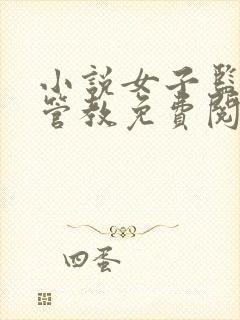 小說女子監
管教免費閱
四蛋